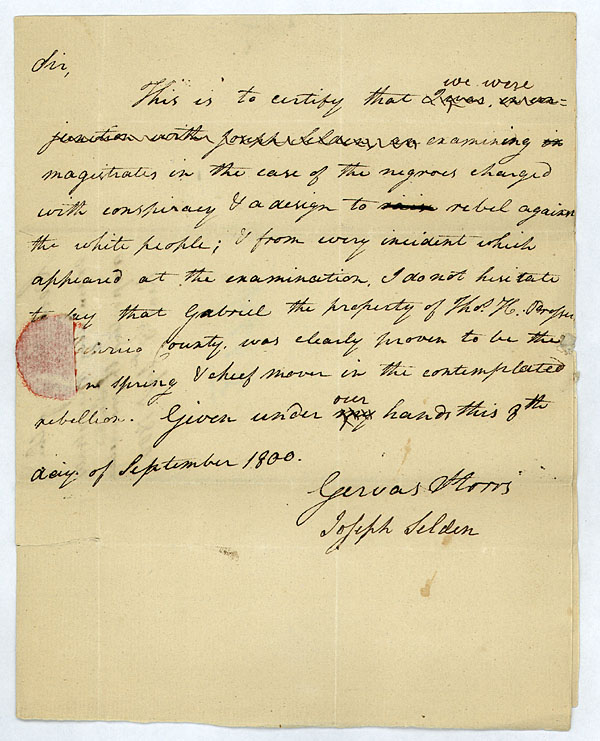 Sir,
we were
This is to certify that I was, in con=
junction with Joseph Selden, an examining in
magistrates in the case of the negroes charged
with conspiracy & a design to rebel against
the white people; & from every incident which
appeared at the examination, I do not hesitate
to say that Gabriel the property of Thos. H. Prosser
Henrico County, was clearly proven to be the
n spring & chief mover in the contemplated
our
rebellion. Given under my hands this 8th
day of September 1800.
Gervas Storrs
Joseph Selden